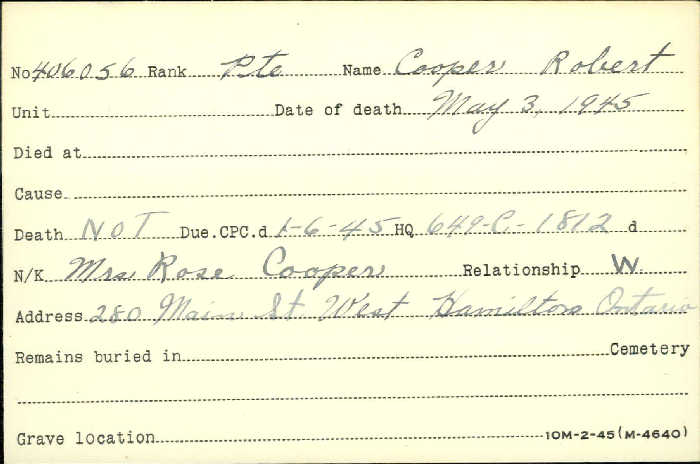 No 406056 Rank Pte Name Cooper Robert
Unit Date of death May 3, 1945
Died at
Cause
Death NOT Due.CPC.d 1-6-45 HQ 649-C-1812 d
N/K Mrs Rose Cooper Relationship W.
Address 280 Main St West Hamilton Ontario
Remains buried in Cemetery
Grave location 10M-2-45(M-4640)